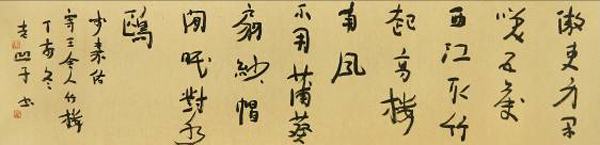 傲吏身閒
笑五侯
西江取竹
起高樓
南風
不用蒲葵
扇紗帽
閒眠對水
鷗
李嘉佑
寄王舍人竹樓
丁亥冬